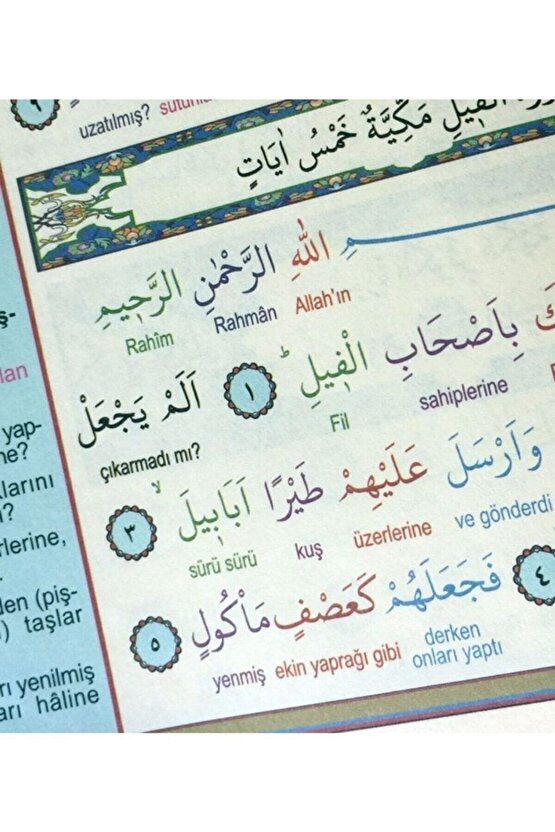 uzatılmış?
الْف۪يلِ مَكِّيَّةٌ خَمْسُ اٰيَاتٍ
اللّٰهِ الرَّحْمٰنِ الرَّح۪يمِ
Allah'ın Rahmân Rahîm
بِاَصْحَابِ الْف۪يلِ ﴿١﴾ اَلَمْ يَجْعَلْ
sahiplerine Fil çıkarmadı mı?
وَاَرْسَلَ عَلَيْهِمْ طَيْرًا اَبَاب۪يلَ ﴿٣﴾
ve gönderdi üzerlerine kuş sürü sürü
﴿٤﴾ فَجَعَلَهُمْ كَعَصْفٍ مَأْكُولٍ ﴿٥﴾
derken onları yaptı ekin yaprağı gibi yenmiş
yap-
larını
rlerine,
den (piş-
taşlar
rı yenilmiş
arı hâline